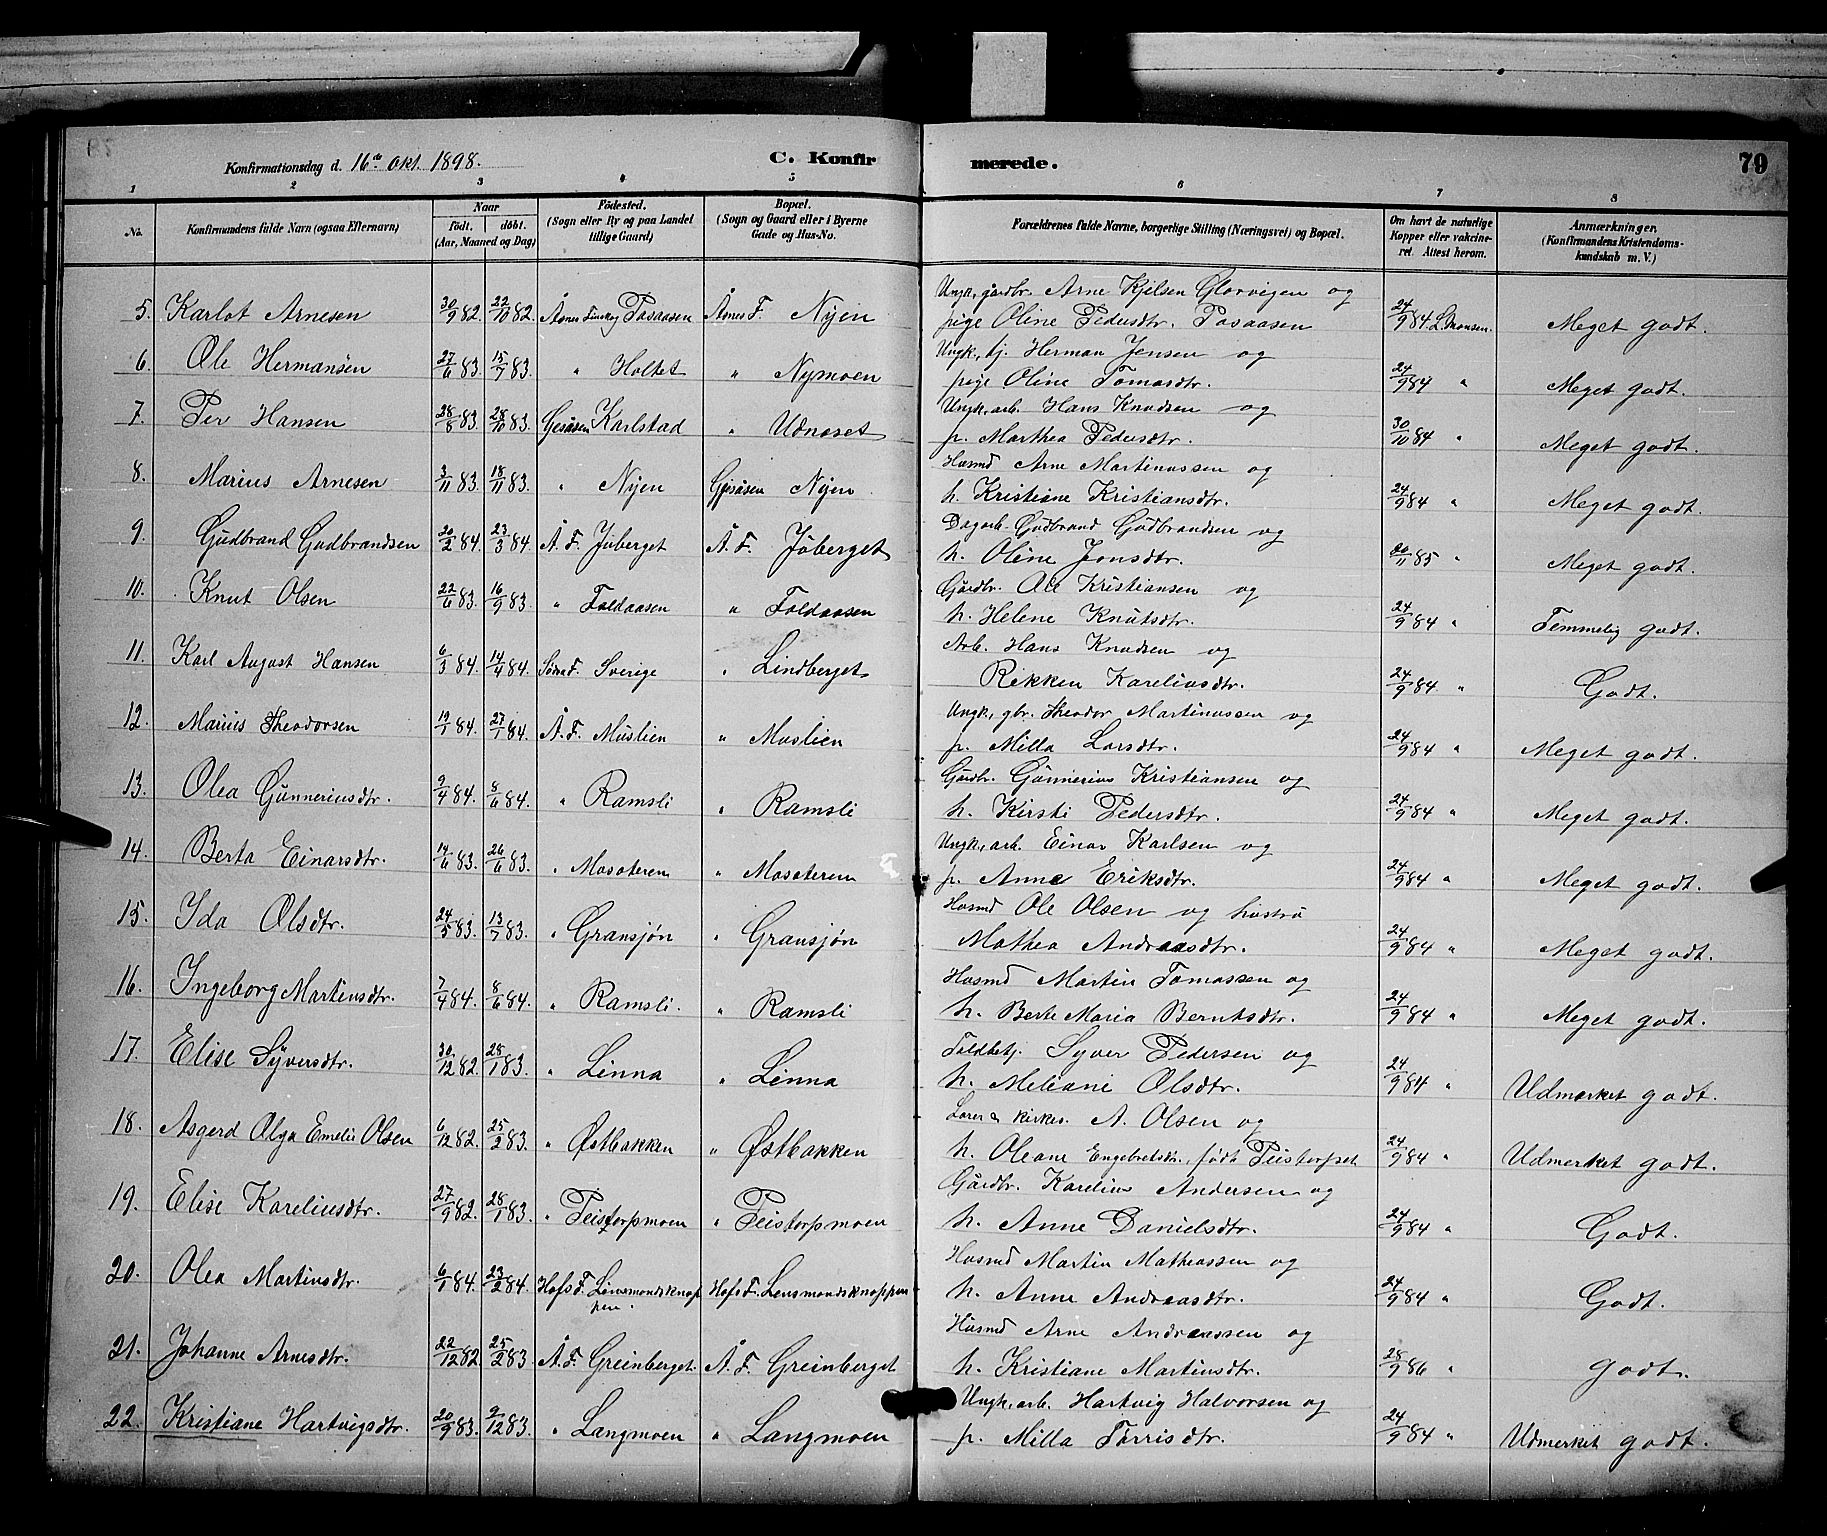 Konfirmationsdag d. 16de Okt. 1898. C. Konfirmerede. 79
1 2 3 4 5 6 7 8
No. Konfirmandens fulde Navn (ogsaa Efternavn) Naar født. døbt. (Aar, Maaned og Dag) Fødested. (Sogn eller By og paa Landet tillige Gaard) Bopæl. (Sogn og Gaard eller i Byerne Gade og Hus-No. Forældrenes fulde Navne, borgerlige Stilling (Næringsvei) og Bopæl. Om havt de naturlige Kopper eller vakcineret. Attest herom. Anmærkninger. (Konfirmandens Kristendomskundskab m. V.)
Ungk., gårdbr. Arne Kjelsen Glorvigen og
5. Karlot Arnesen 30/9 82. 22/10 82. Åsnes Finskog Posaasen Åsnes F. Nyen pige Oline Pedersdtr. Posaasen 24/9 84. L. Monsen. Meget godt.
Ungk., tj. Herman Jensen og
6. Ole Hermansen 27/6 83. 15/7 83. " Holtet " Nymoen pige Oline Tomasdtr. 24/9 84 " Meget godt.
Ungk., arb. Hans Knudsen og
7. Per Hansen 28/8 83. 28/10 83. Gjesåsen Karlstad " Udnæset p. Marthea Pedersdtr. 30/10 84 " Meget godt.
Husmd Arne Martinussen og
8. Marius Arnesen 3/11 83. 18/11 83. " Nyen Gjesåsen Nyen h. Kristiane Kristiansdtr. 24/9 84 " Meget godt.
Dagarb. Gudbrand Gudbrandsen og
9. Gudbrand Gudbrandsen 20/2 84. 23/3 84. Å. F. Juberget Å. F. Juberget h. Oline Jonsdtr. 20/11 85 " Meget godt.
Gårdbr. Ole Kristiansen og
10. Knut Olsen 22/6 83. 16/9 83. " Faldaasen " Faldaasen h. Helene Knutsdtr. 24/9 84 " Temmelig godt.
Arb. Hans Knudsen og
11. Karl August Hansen 6/3 84. 14/4 84. Sverige " Lindberget Rikken Kareliusdtr. 24/9 84 " Godt.
Ungk., gbr. Theodor Martinussen og
12. Marius Theodorsen 19/1 84. 27/1 84. Å. F. Muslien " Muslien p. Milla Larsdtr. 24/9 84 " Meget godt.
Gårdbr. Gunnerius Kristiansen og
13. Olea Gunneriusdtr. 2/4 84. 8/6 84. " Ramsli " Ramsli h. Kirsti Pedersdtr. 24/9 84 " Meget godt.
Ungk., arb. Einar Karlsen og
14. Berta Einarsdtr. 14/6 83. 26/6 83. " Mosoteren " Mosoteren p. Anne Eriksdtr. 24/9 84 " Meget godt.
Husmd Ole Olsen og hustru
15. Ida Olsdtr. 24/5 83. 13/7 83. " Gransjøn " Gransjøn Mathea Andreasdtr. 24/9 84 " Meget godt.
Husmd Martin Tomassen og
16. Ingeborg Martinsdtr. 7/4 84. 8/6 84. " Ramsli. " Ramsli h. Berte Maria Berntsdtr. 24/9 84 " Meget godt.
Toldbetj. Syver Pedersen og
17. Elise Syversdtr. 30/12 82. 28/1 83. " Linna " Linna h. Meliane Olsdtr. 24/9 84 " Udmerket godt.
Lærer & kirkes. A. Olsen og
18. Asgerd Olga Emelie Olsen 6/12 82. 25/2 83. " Østbakken " Østbakken h. Oleane Engebretsdr., født Peistorpet 24/9 84 " Udmerket godt.
Gårdbr. Karelius Andersen og
19. Elise Kareliusdtr. 27/9 82. 28/1 83. " Peistorpmoen " Peistorpmoen h. Anne Danielsdtr. 24/9 84 " Godt.
Husmd Martin Matheassen og
20. Olea Martinsdtr. 6/1 84. 23/2 84. Hofs F. Linsmondsknoppen. Hofs F. Lensmondsknoppen h. Anne Andreasdtr. 24/9 84 " Godt.
Husmd Arne Andreassen og
21. Johanne Arnesdtr. 22/12 82. 25/2 83. Å. F. Greinberget. Å. F. Greinberget h. Kristiane Martinsdtr. 28/9 86 " godt.
Ungk., arb. Hartvig Halvorsen og
22. Kristiane Hartvigsdtr. 20/9 83. 2/12 83. " Langmoen " Langmoen p. Milla Tørrisdtr. 24/9 84 " Udmerket godt.